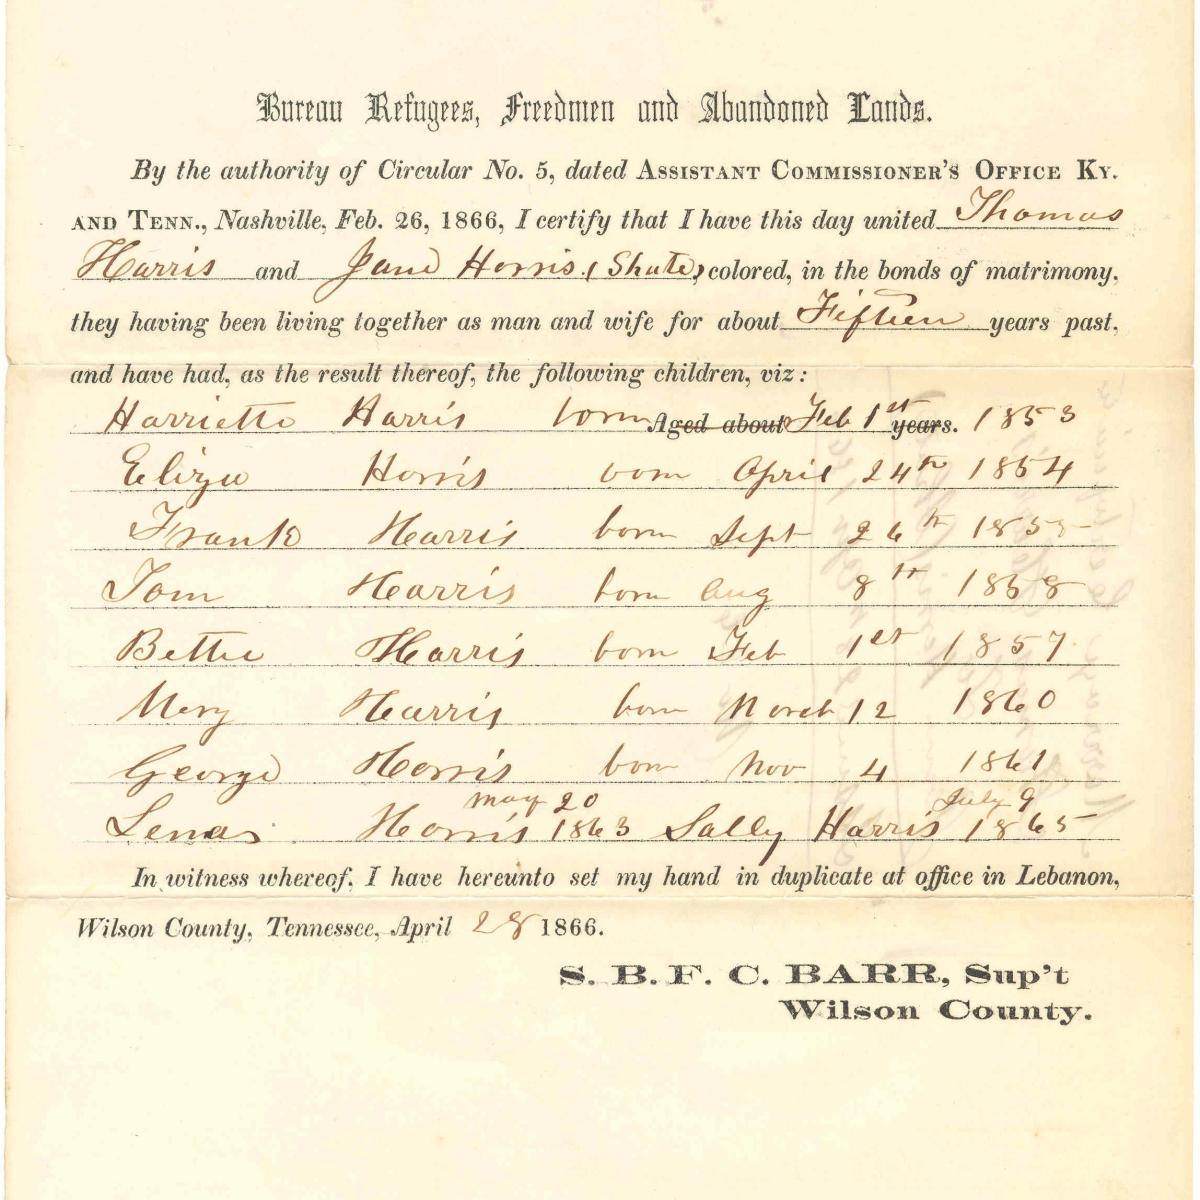 Bureau Refugees, Freedmen and Abandoned Lands.
By the authority of Circular No. 5, dated Assistant Commissioner's Office Ky.
and Tenn., Nashville, Feb. 26, 1866, I certify that I have this day united Thomas
Harris and Jane Harris (Shute) colored, in the bonds of matrimony,
they having been living together as man and wife for about Fifteen years past,
and have had, as the result thereof, the following children, viz:
Harriette Harris born Aged about Feb 1st years. 1853
Eliza Harris born April 24th 1854
Frank Harris born Sept 26th 1855
Tom Harris born Aug 8th 1858
Bettie Harris born Feb 1st 1857
Mary Harris born March 12 1860
George Harris born Nov 4 1861
May 20 July 9
Harris 1863 Sally Harris 1865
In witness whereof, I have hereunto set my hand in duplicate at office in Lebanon,
Wilson County, Tennessee, April 28 1866.
S. B. F. C. BARR, Sup't
Wilson County.